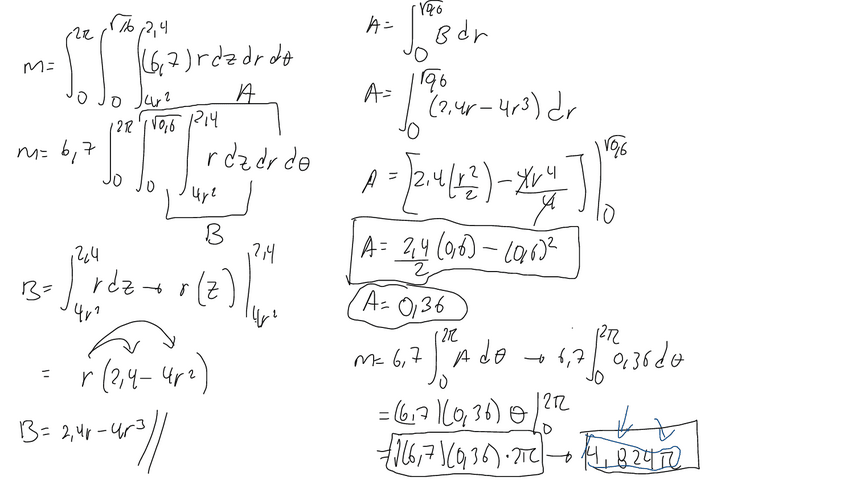 m= ∫₀^2π ∫₀^√,6 ∫_4r²^2,4 (6,7) r dz dr dθ
A
m= 6,7 ∫₀^2π ∫₀^√0,6 ∫_4r²^2,4 r dz dr dθ
B
B= ∫_4r²^2,4 r dz → r (z) |_4r²^2,4
= r (2,4 - 4r²)
B= 2,4r - 4r³ //
A= ∫₀^√0,6 B dr
A= ∫₀^√0,6 (2,4r - 4r³) dr
A = [2,4 (r²/2) - 4r⁴/4] |₀^√0,6
A= 2,4/2 (0,6) - (0,6)²
A= 0,36
m= 6,7 ∫₀^2π A dθ → 6,7 ∫₀^2π 0,36 dθ
= (6,7)(0,36) θ |₀^2π
= (6,7)(0,36) · 2π → 4,824π